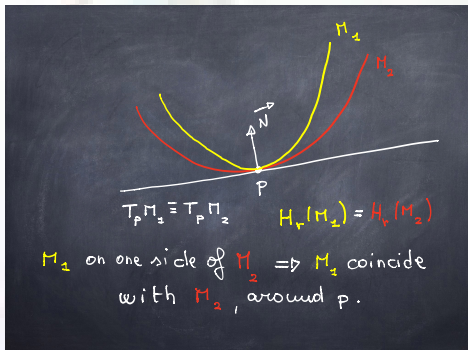 M₁
M₂
N
P
TₚM₁ ≡ TₚM₂
Hᵣ(M₁) = Hᵣ(M₂)
M₁ on one side of M₂ ⇒ M₁ coincide
with M₂, around p.